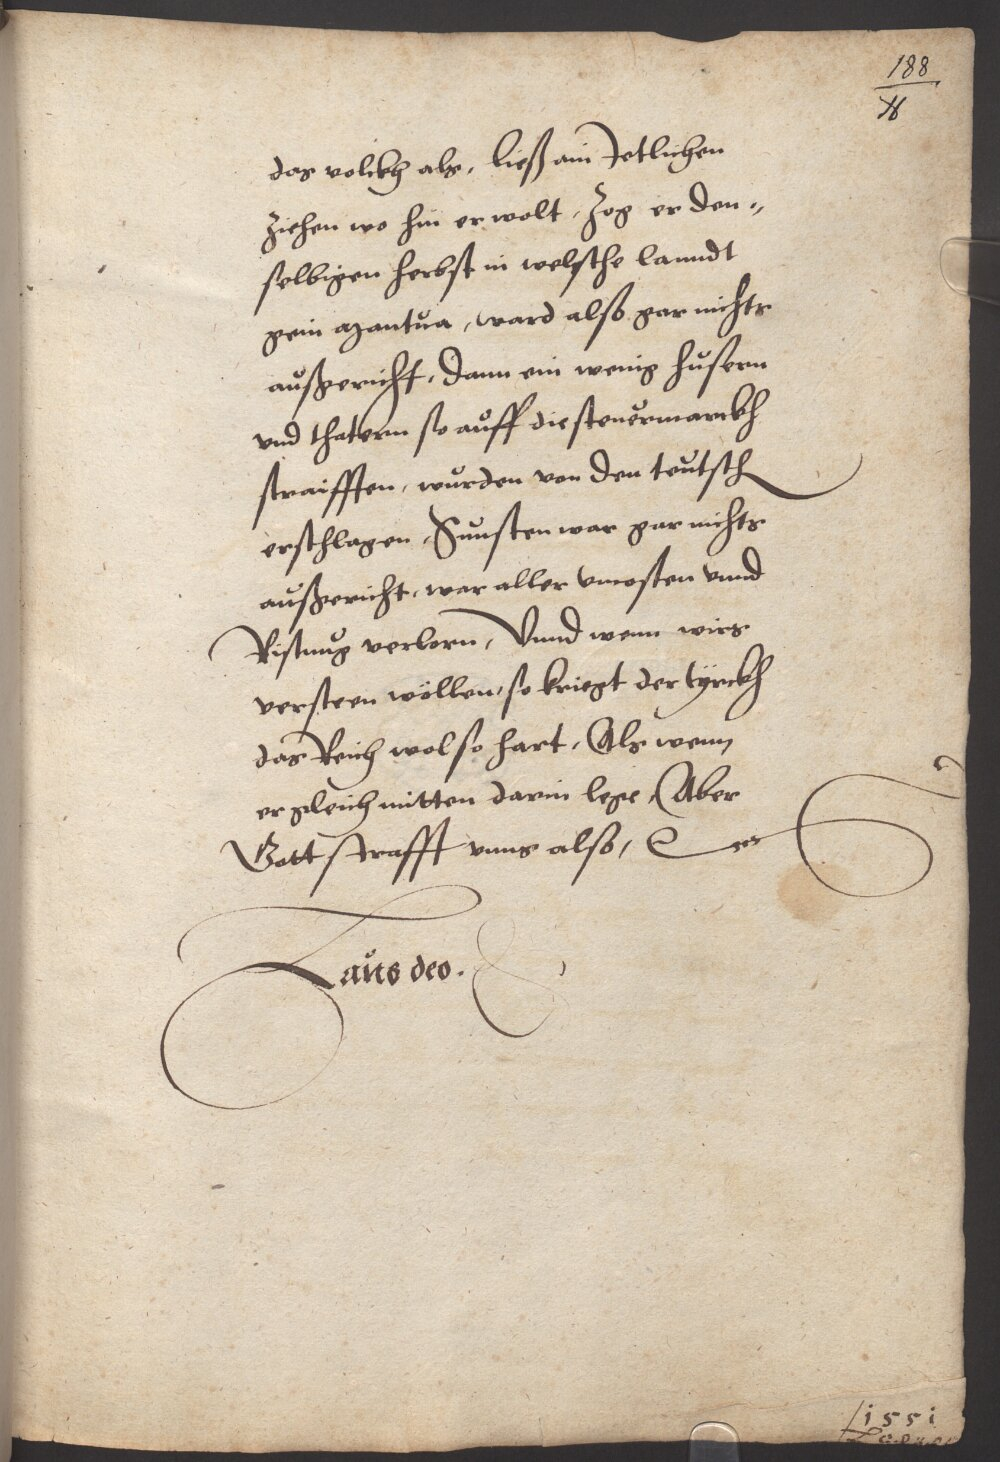 188
das volckh als, ließ ain Jetlichen
Ziehen wo hin er wolt, Zog er den„
selbigen herbst in welsche lanndt
gein Mantua, ward also gar nichts
außgericht, dann ein wenig husern
vnd thatern so auff die steuermarckh
straifften, wurden von den teutsch
erschlagen, Sunsten war gar nichts
außgericht, war aller vncosten vnnd
Ristung verlorn, Vnnd wenn wirs
versteen wöllen, so kriegt der tÿrckh
das Reich wol so hart, Als wenn
er gleich mitten darin lege, Aber
Gott strafft vnns also,
Laus deo.
1551